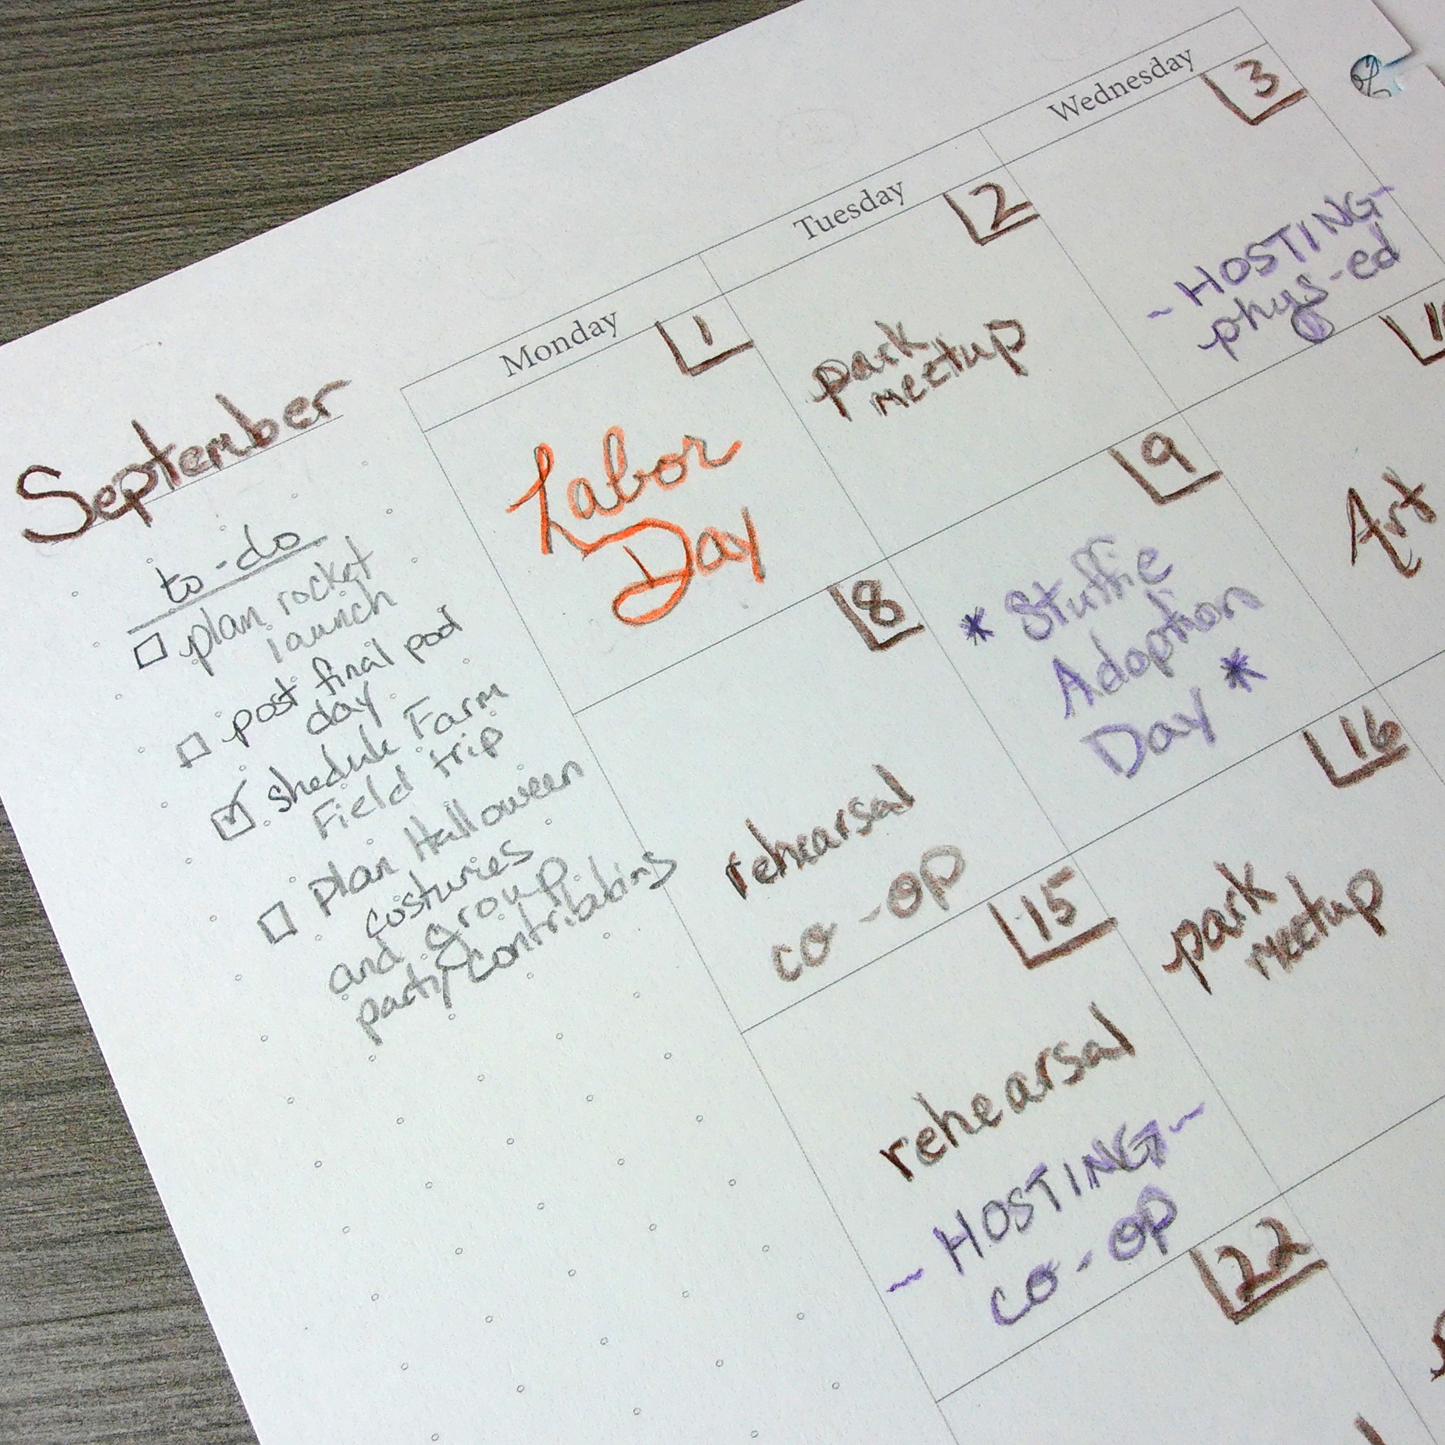 September
to-do
plan rocket
launch
post final pool
day
shedule Farm
Field trip
plan Halloween
costumes
and group
party contributions
Monday
Tuesday
Wednesday
1
Labor
Day
2
park
meetup
3
~HOSTING~
phys-ed
8
rehearsal
co-op
9
* Stuffie
Adoption
Day *
Art
15
rehearsal
~HOSTING~
co-op
16
park
meetup
22